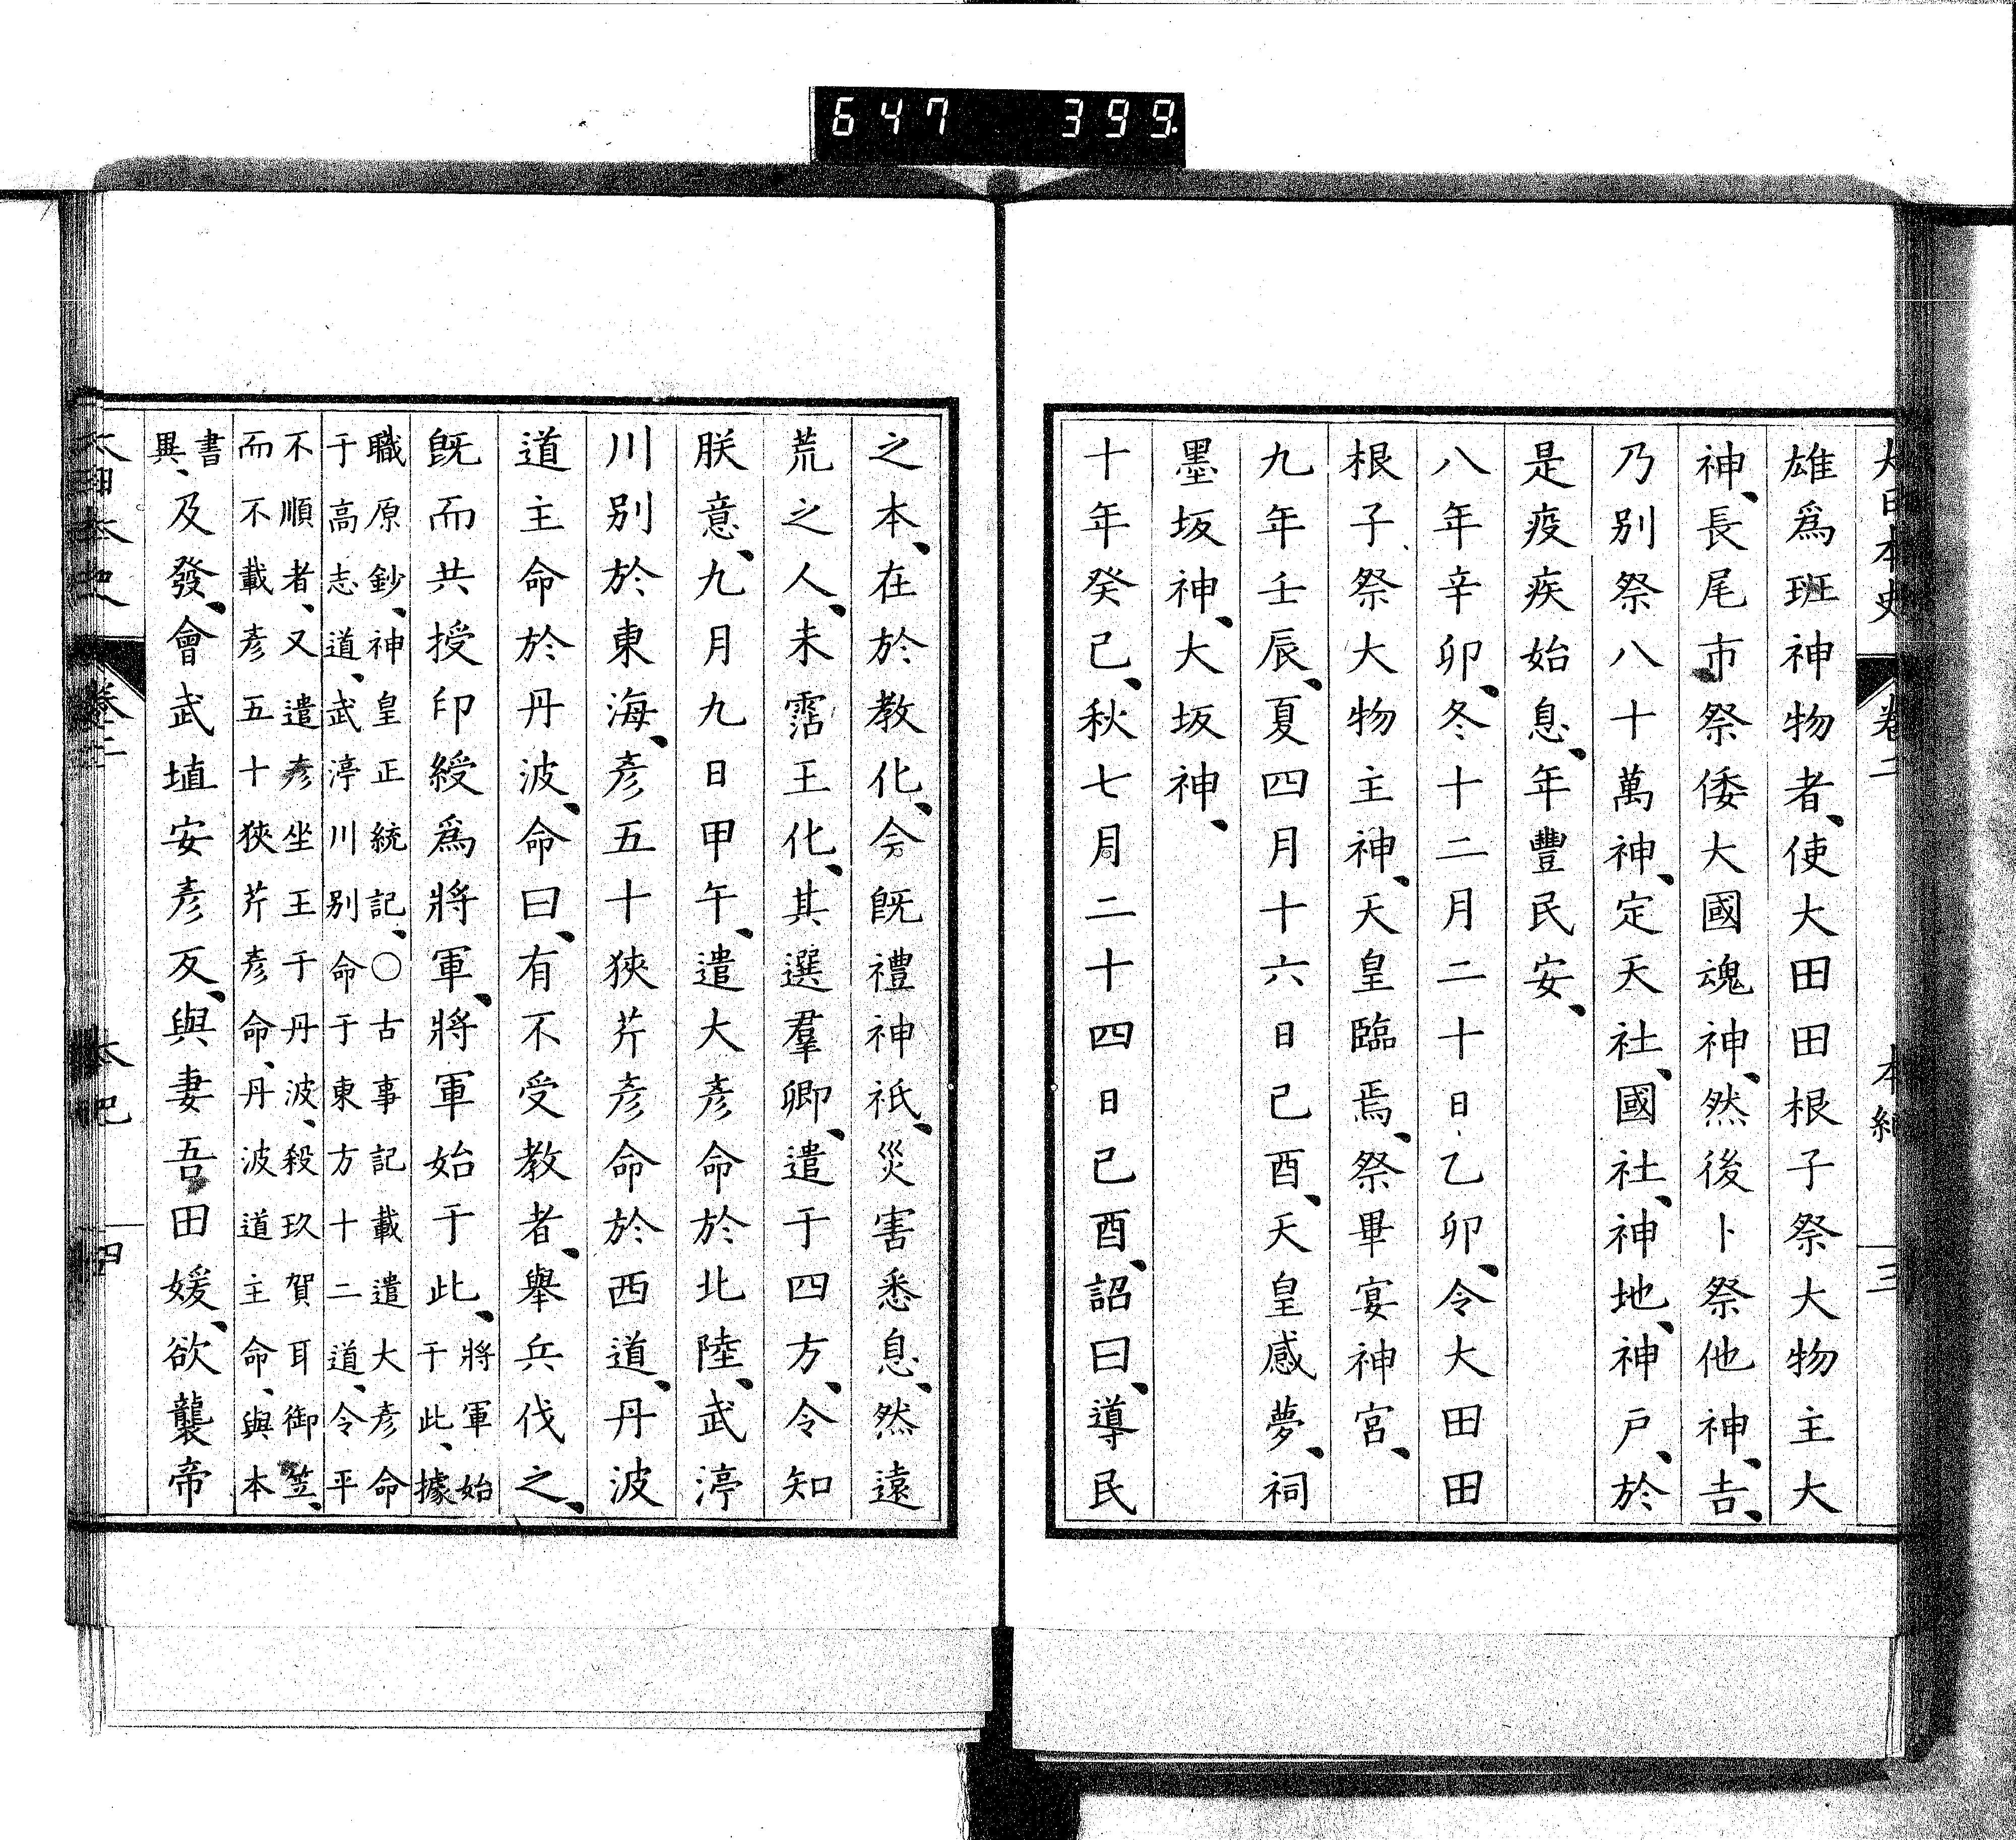 647 399.
大日本史 卷二 本紀 三
雄爲班神物者、使大田田根子祭大物主大
神、長尾市祭倭大國魂神、然後卜祭他神、吉、
乃別祭八十萬神、定天社、國社、神地、神戶、於
是疫疾始息、年豐民安、
八年辛卯、冬十二月二十日乙卯、令大田田
根子祭大物主神、天皇臨焉、祭畢宴神宮、
九年壬辰、夏四月十六日己酉、天皇感夢、祠
墨坂神、大坂神、
十年癸巳、秋七月二十四日己酉、詔曰、導民
之本、在於教化、今既禮神祇、災害悉息、然遠
荒之人、未霑王化、其選羣卿、遣于四方、令知
朕意、九月九日甲午、遣大彥命於北陸、武渟
川別於東海、彥五十狹芹彥命於西道、丹波
道主命於丹波、命曰、有不受教者、舉兵伐之、
既而共授印綬爲將軍、將軍始于此、將軍始
于此、據
職原鈔、神皇正統記、〇古事記載遣大彥命
于高志道、武渟川別命于東方十二道、令平
不順者、又遣彥坐王于丹波、殺玖賀耳御笠、
而不載彥五十狹芹彥命、丹波道主命、與本
書
異、及發、會武埴安彥反、與妻吾田媛、欲襲帝
大日本史 卷二 本紀 四